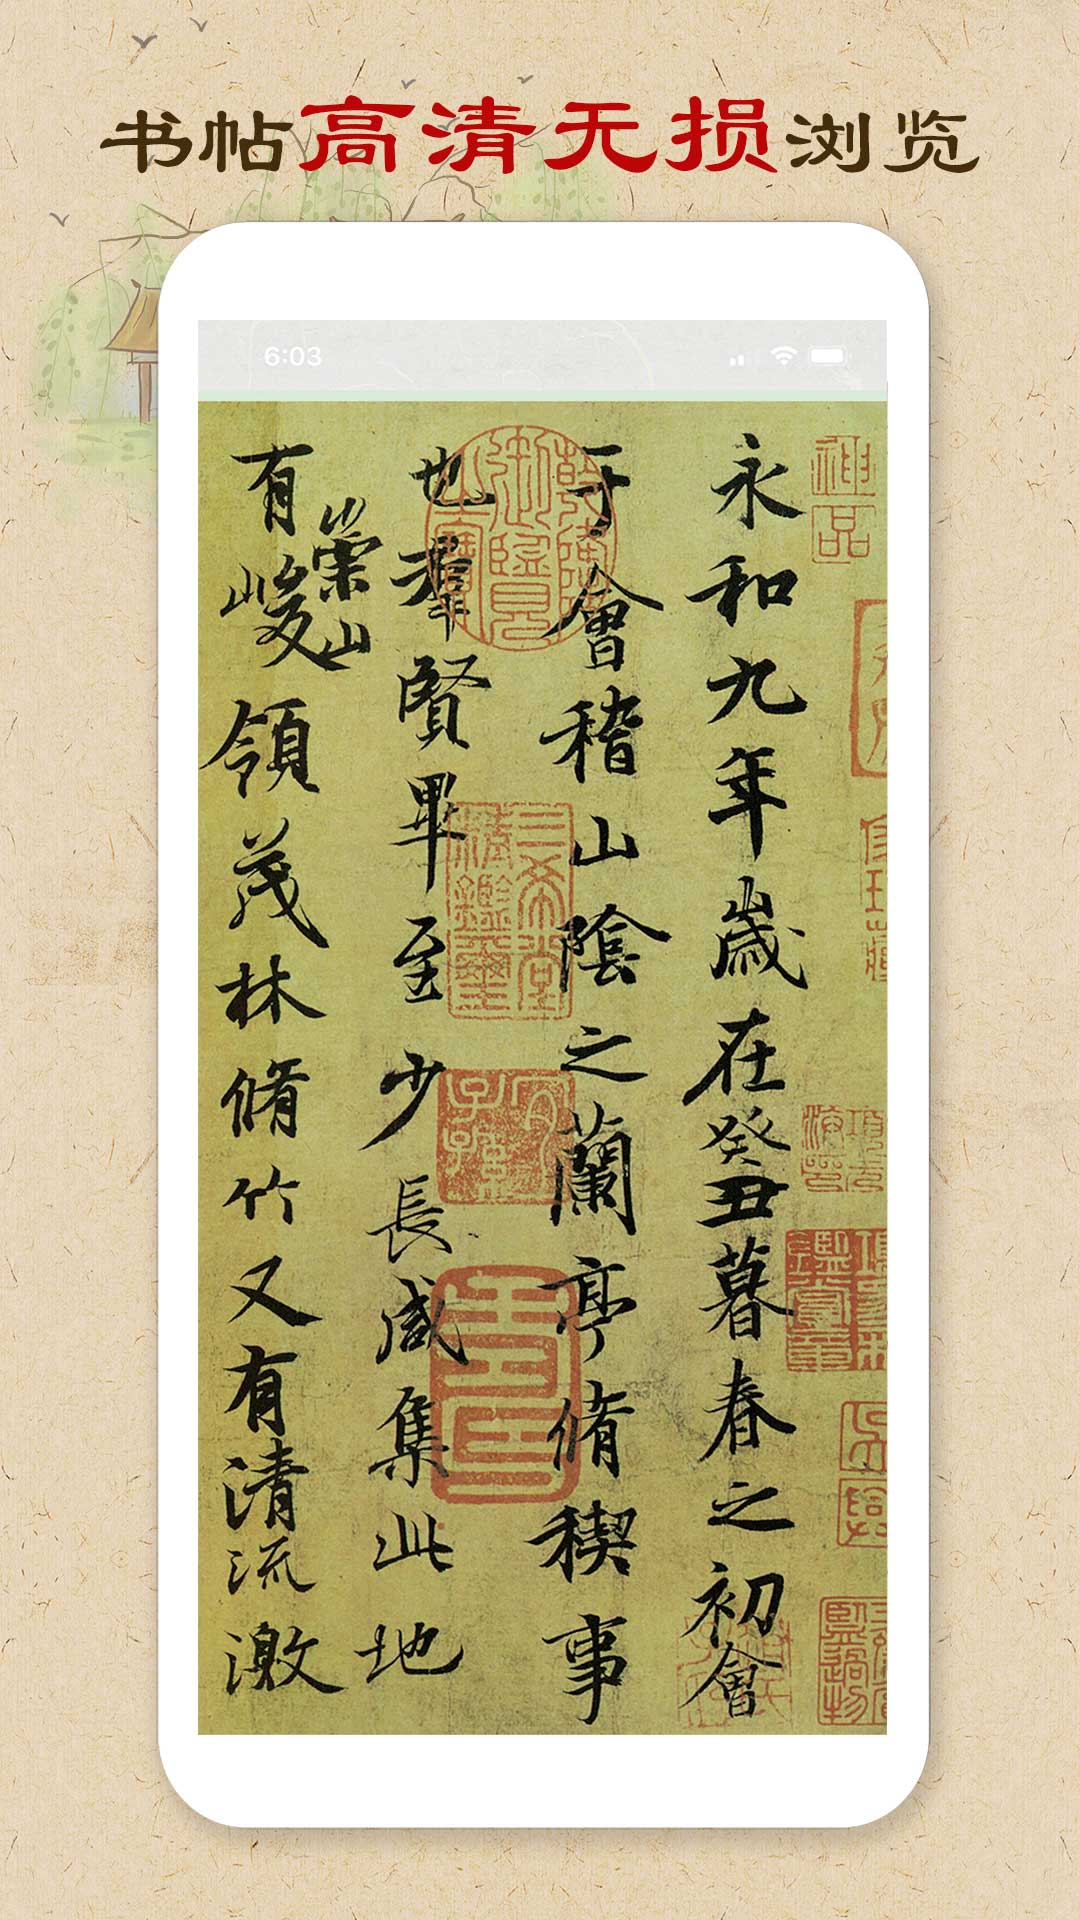 书帖高清无损浏览
6:03
永和九年歲在癸丑暮春之初會
于會稽山陰之蘭亭脩稧事
也羣賢畢至少長咸集此地
有崇山峻領茂林脩竹又有清流激
神品
三希堂精鑑璽
乾隆御覽之寶